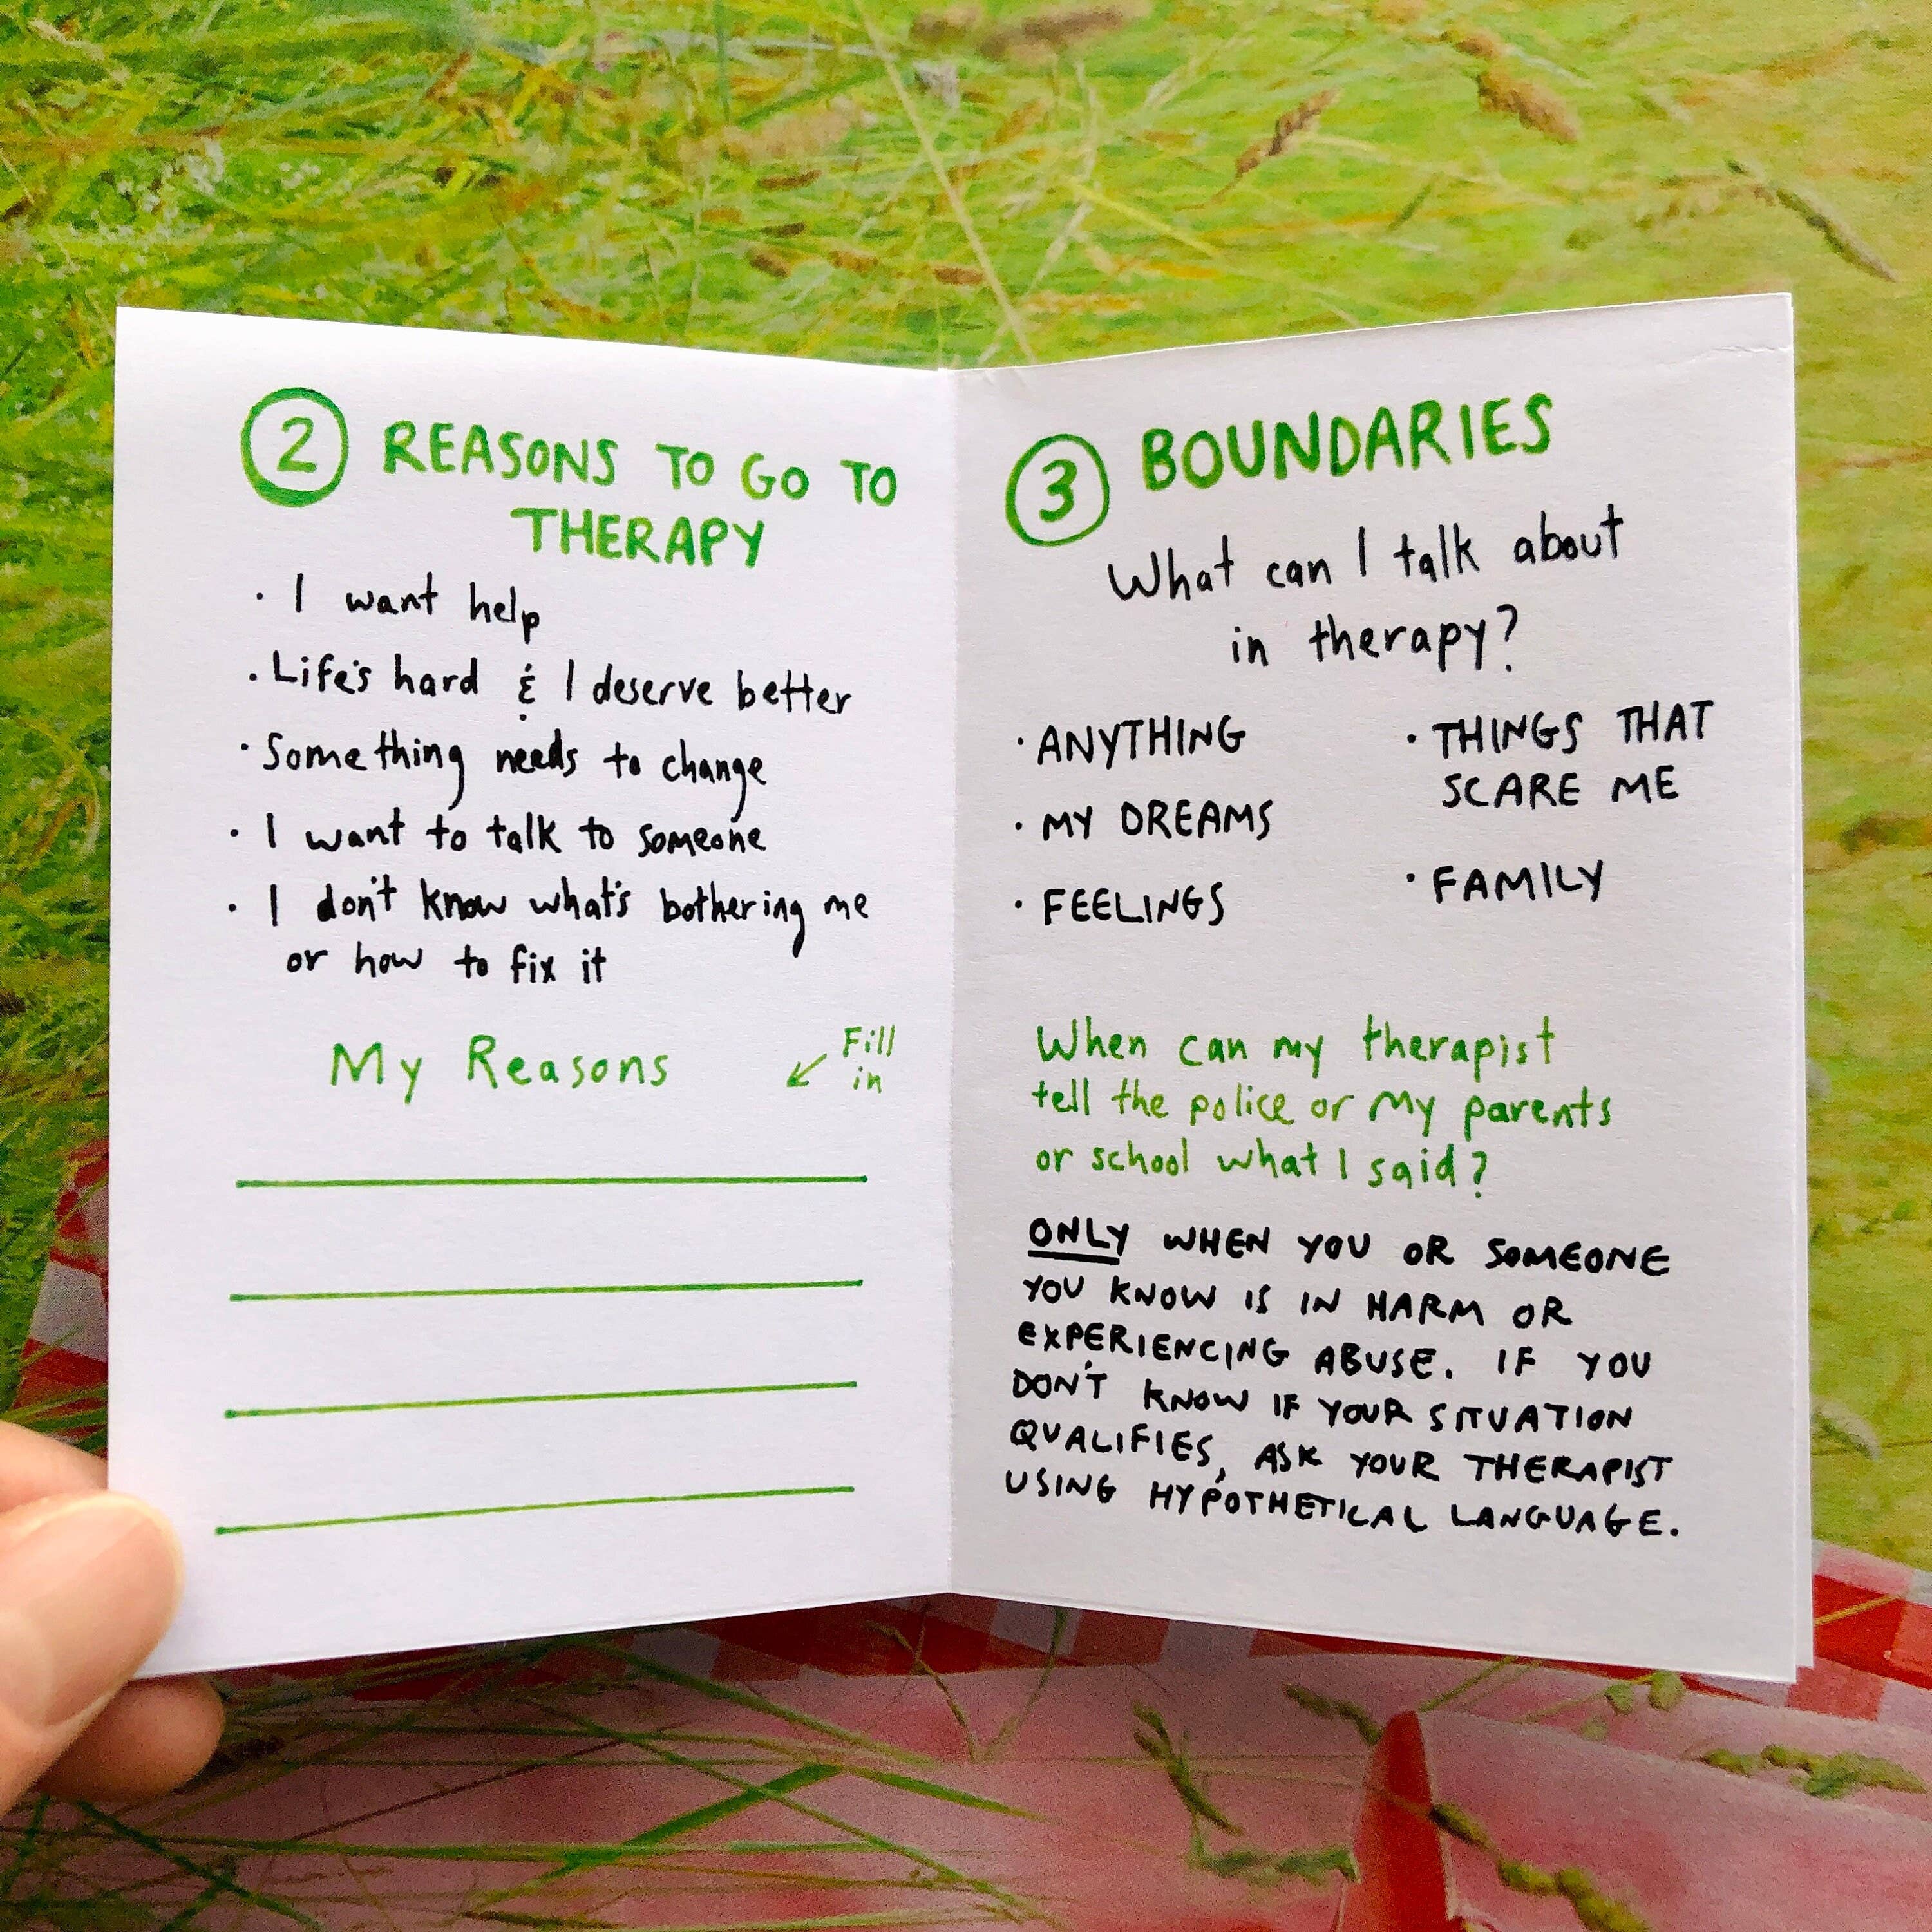 2 REASONS TO GO TO
THERAPY
· I want help
· Life's hard & I deserve better
· Something needs to change
· I want to talk to someone
· I don't know what's bothering me
or how to fix it
My Reasons
Fill
in
3 BOUNDARIES
What can I talk about
in therapy?
· ANYTHING
· MY DREAMS
· FEELINGS
· THINGS THAT
SCARE ME
· FAMILY
When can my therapist
tell the police or my parents
or school what I said?
ONLY WHEN YOU OR SOMEONE
YOU KNOW IS IN HARM OR
EXPERIENCING ABUSE. IF YOU
DON'T KNOW IF YOUR SITUATION
QUALIFIES, ASK YOUR THERAPIST
USING HYPOTHETICAL LANGUAGE.